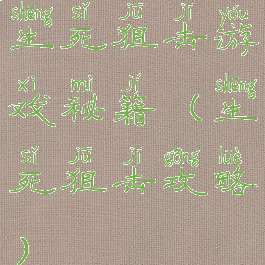 shēng sǐ jū jī yóu
生死狙击游
xì mì jí shēng
戏秘籍（生
sǐ jū jī gōng lüè
死狙击攻略
）